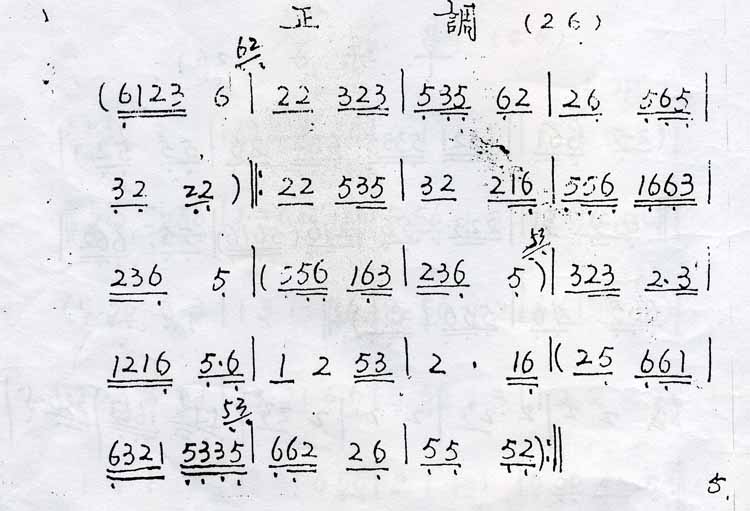 正 調 (26)
62
(6123 6 | 22 323 | 535 62 | 26 565 |
32 22 ) ‖: 22 535 | 32 216 | 556 1663 |
53
236 5 |( 556 163 | 236 5 )| 323 2.3 |
1216 5.6 | 1 2 53 | 2 . 16 |( 25 661 |
53
6321 5335 | 662 26 | 55 52 ):‖
5.